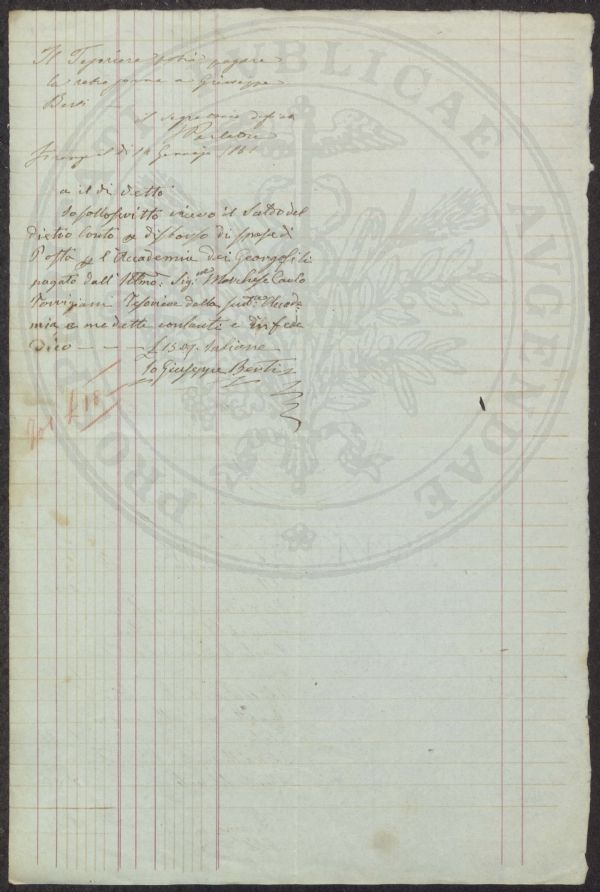 Il Tesoriere potrà pagare
la retro somma a Giuseppe
Berti
Il Segretario
Firenze il di 14 Gennajo 1861
a il di detto
Io sottoscritto ricevo il Saldo del
dietro Conto di spese di
Posta l'Accademia dei Georgofili
pagato dall' Illmo. Sigre. Marchese Carlo
Torrigiani Tesoriere della Accade-
mia e me dette contanti e in fede
dico - - - £ 15.09. Italiane
Io Giuseppe Berti
£ 18
PROSPERITATI PUBLICAE AUGENDAE